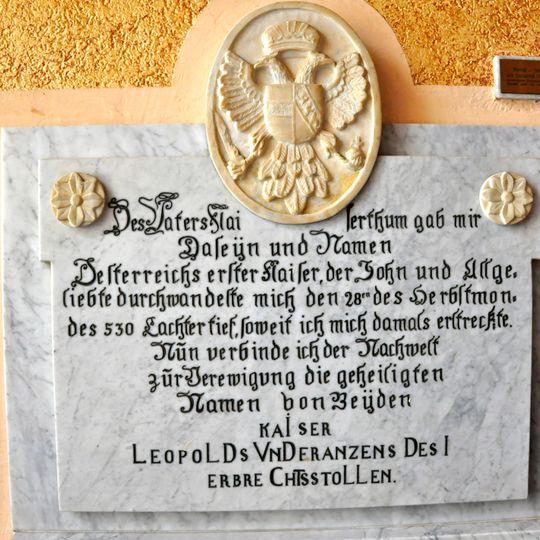 Des Vaters Kai serthum gab mir
Daseÿn und Namen
Oesterreichs erster Kaiser, der Sohn und Allge-
liebte durchwandelte mich den 28ten des Herbstmon-
des 530 Lachter tief, soweit ich mich damals erstreckte.
Nun verbinde ich der Nachwelt
zur Verewigung die geheiligten
Namen von Beÿden
KAISER
LEOPOLDS UNDERANZENS DES I
ERBRE CHTSSTOLLEN.